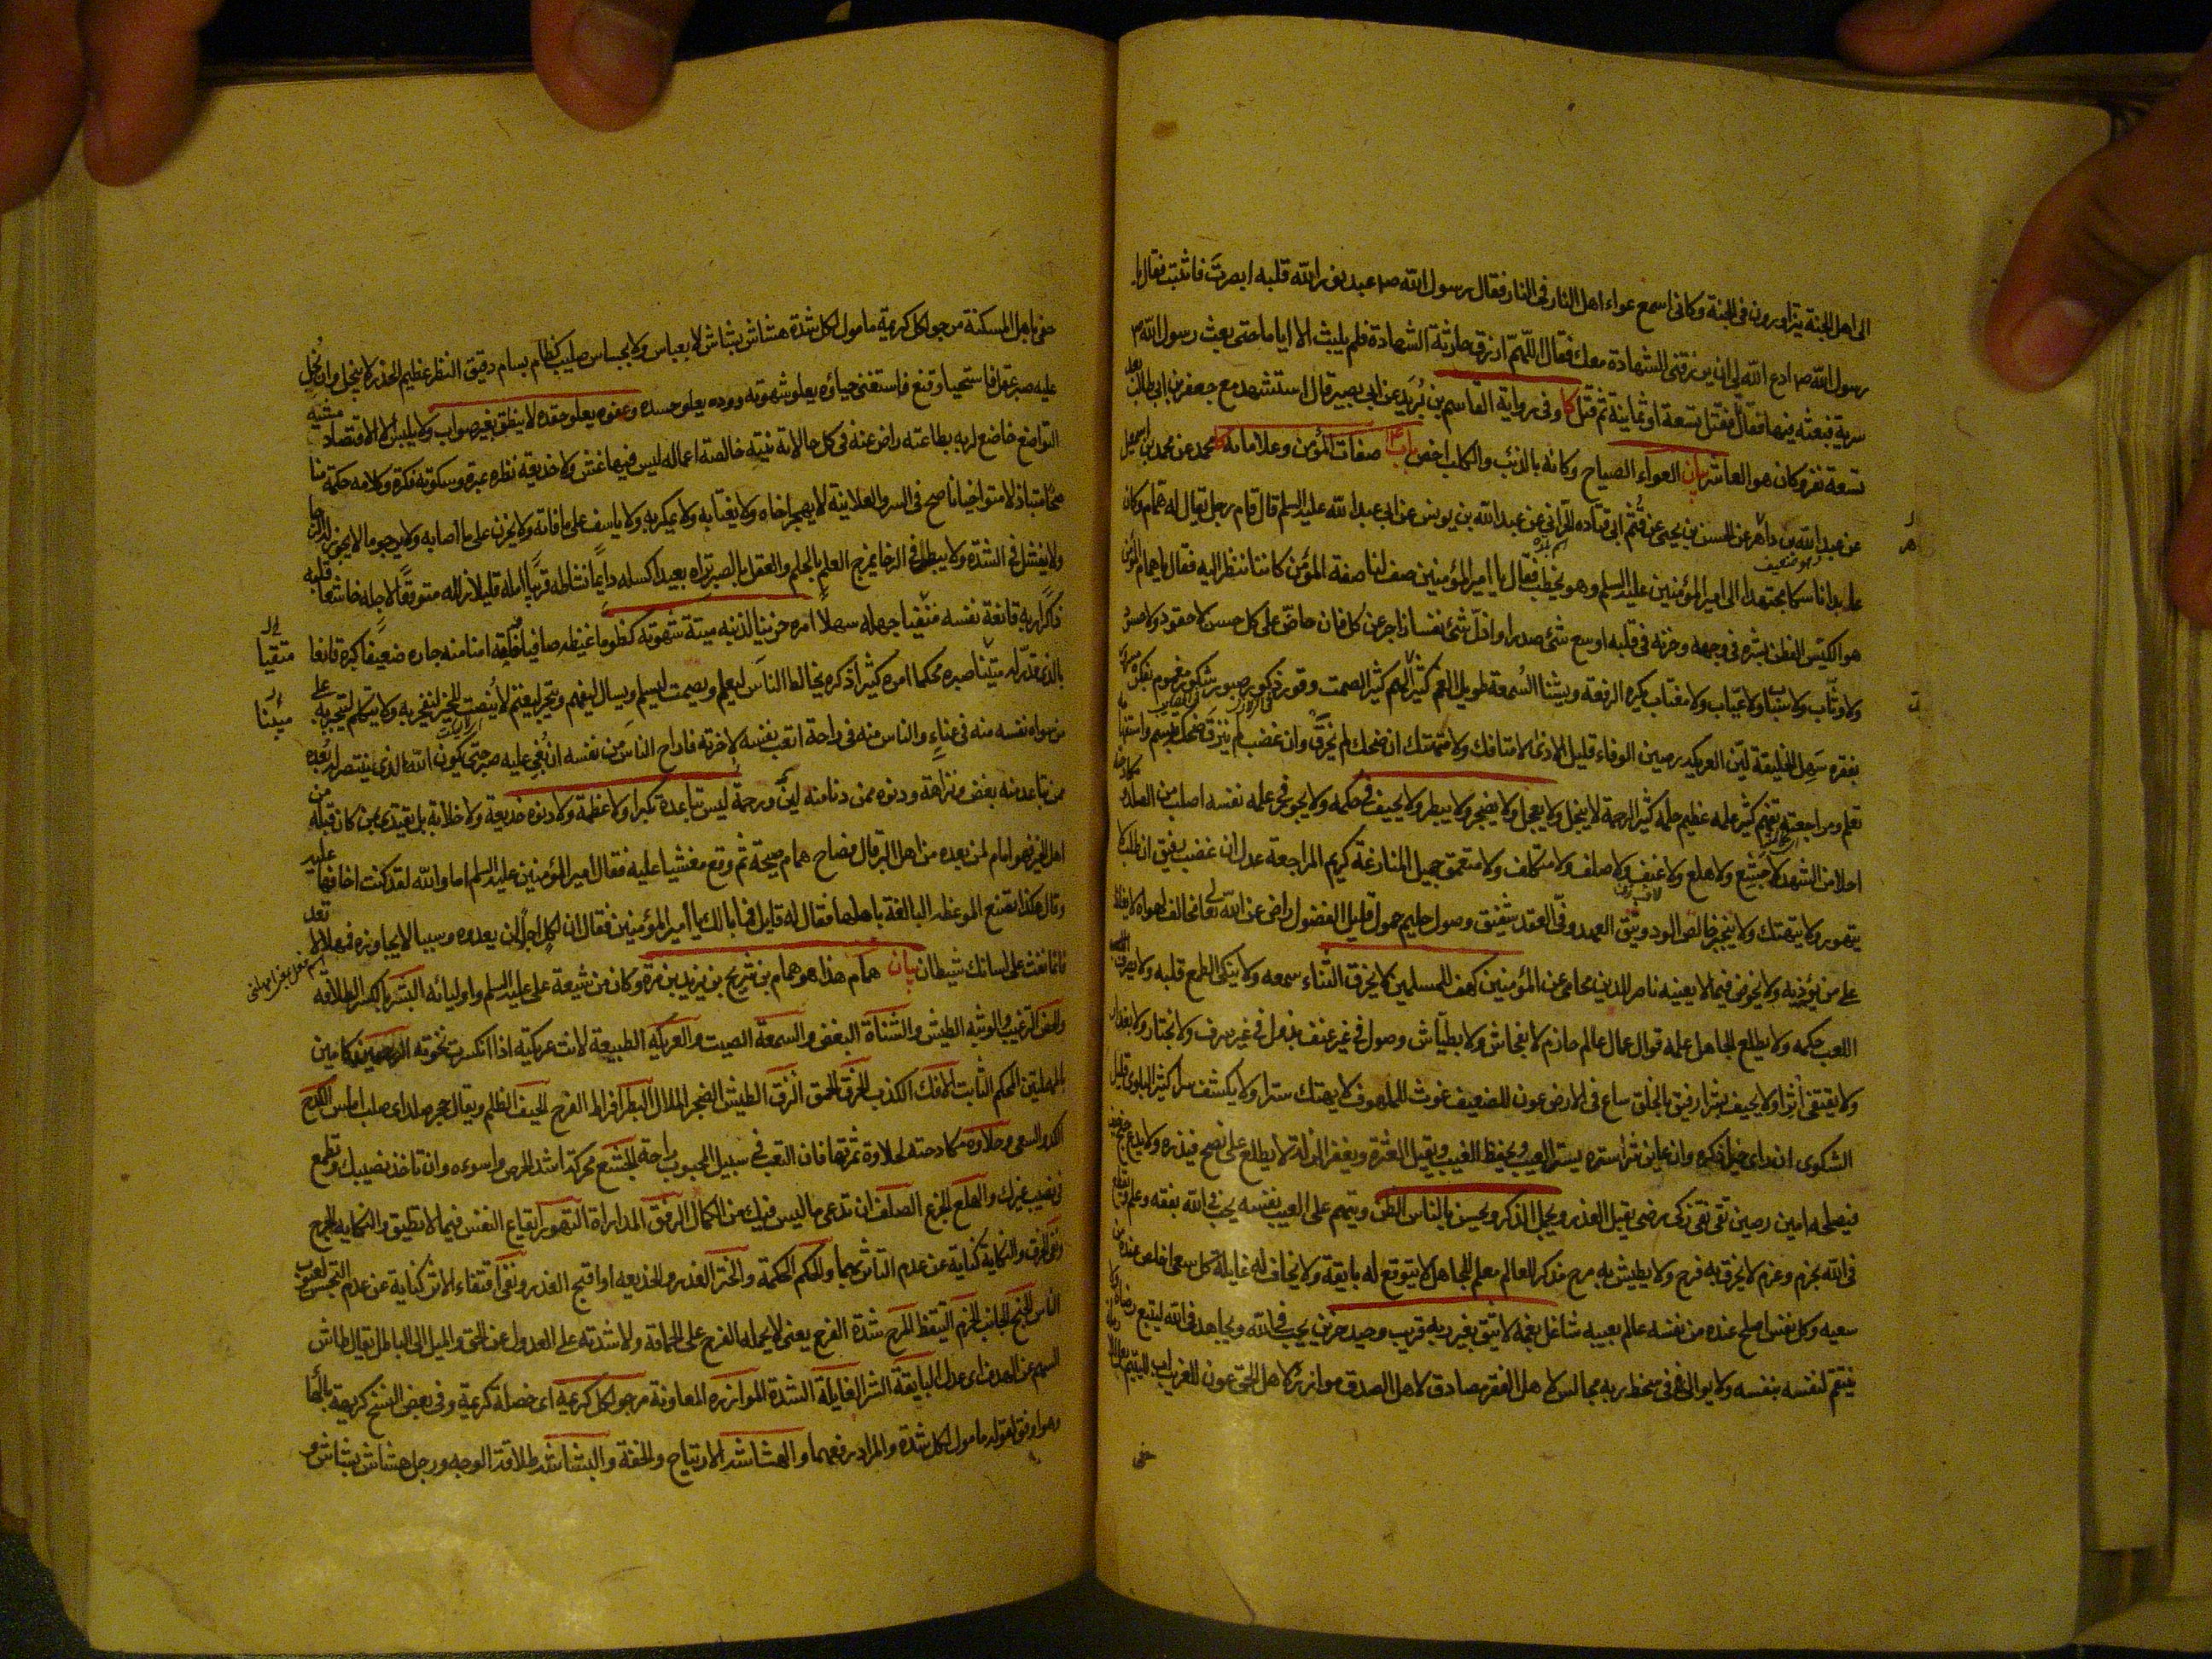 الى اهل الجنة يتزاورون فى الجنة وكانى اسمع عواء اهل النار فى النار فقال رسول الله ص عبد نور الله قلبه ابصرت فاثبت فقال يا
رسول الله ص ادع الله لى ان يرزقنى الشهادة معك فقال اللهم ارزق حارثة الشهادة فلم يلبث الا اياما حتى بعث رسول الله ص
سرية فبعثه فيها فقاتل فقتل تسعة او ثمانية ثم قتل كا وفى رواية القاسم بن بُرَيد عن ابى بصير قال استشهد مع جعفر بن ابى طالب بعد
تسعة نفر وكان هو العاشر بيان العواء الصياح وكانه بالذئب والكلب اخص باب صفات المؤمن وعلاماته كا محمد عن محمد بن اسمعيل
عن عبد الله بن داهر عن الحسن بن يحيى عن قُثَم ابى قتاده الحرانى عن عبد الله بن يونس عن ابى عبد الله عليه السلم قال قام رجل يقال له همام وكان
عابدا ناسكا مجتهدا الى امير المؤمنين عليه السلم وهو يخطب فقال يا أمير المؤمنين صف لنا صفة المؤمن كاننا ننظر اليه فقال يا همام المؤمن
هو الكيس الفطن بشره فى وجهه وحزنه فى قلبه اوسع شئ صدرا واذلّ شئ نفسا زاجر عن كل فان حاضّ على كل حسن لا حقود ولا حسود
ولا وثّاب ولا سباب ولا عيّاب ولا مغتاب يكره الرفعة ويشنا السُمعة طويل الغم كثير الهم كثير الصمت وقور ذكور صبور شكور مغموم بفكره مسرور
بفقره سَهِل الخليقة ليّن العريكه رصين الوفاء قليل الاذى لا متافك ولا متهتك ان ضحك لم يخرق وان غضب لم ينزق ضحكه تبسم واستفهامه
تعلم ومراجعته تفهّم كثير علمه عظيم حلمه كثير الرحمة لا يبخل ولا يعجل ولا يضجر ولا يبطر ولا يحيف فى حكمه ولا يجور فى علمه نفسه اصلب من الصلد ومكادحته
احلا من الشهد لا جَشِع ولا هلع ولا عنف ولا صلف ولا متكلف ولا متعمق جميل المنازعة كريم المراجعة عدل ان غضب رفيق ان طلب لا
يتهور ولا يتهتك ولا يتجبر خالص الود وثيق العهد وفىّ العقد شفيق وصول حليم حمول قليل الفضول راض عن الله تعالى مخالف لهواه لا يغلظ
على من يؤذيه ولا يخوض فيما لا يعنيه ناصر للدين محامى عن المؤمنين كهف للمسلمين لا يخرق الثناء سمعه ولا ينكى الطمع قلبه ولا يصرف
اللعب حكمه ولا يطلع الجاهل علمه قوال عمال عالم حازم لا بفحاش ولا بطيّاش وصول فى غير عنف بذول فى غير سرف ولا بختار ولا بغدار
ولا يقتفى أثرا ولا يحيف بشرا رفيق بالخلق ساع فى الارض عون للضعيف غوث للملهوف لا يهتك سترا ولا يكشف سرا كثير البلوى قليل
الشكوى ان راى خيرا ذكره وان عاين شرا ستره يستر العيب ويحفظ الغيب ويقيل العثرة ويغفر الزلة لا يطلع على نصح فيذره ولا يدع جنح حيف
فيصلحه امين رصين تقى نقى زكى رضى يقبل العذر ويجمل الذكر ويحسن بالناس الظن ويتهم على العيب نفسه يحب فى الله بفقه وعلم ويقطع
فى الله بحزم وعزم لا يخرق به فرح ولا يطيش به مرح مذكر للعالم معلم للجاهل لا يتوقع له بايقة ولا يخاف له غايلة كل سعى اخلص عنده من
سعيه وكل نفس اصلح عنده من نفسه عالم بعيبه شاغل بغمه لا يثق بغير ربه قريب وحيد حزين يحب فى الله ويجاهد فى الله ليتبع رضاه ولا
ينتقم لنفسه بنفسه ولا يوالى فى سخط ربه مجالس لاهل الفقر مصادق لاهل الصدق موازر لاهل الحق عون للغريب اب لليتيم بعل للارملة
حفى
حفى باهل المسكنة مرجو لكل كريهة مامول لكل شدة هشاش بشاش لا بعباس ولا بجساس صليب كظام بسام دقيق النظر عظيم الحذر لا يبخل وان بُخل
عليه صبر عقل فاستحيا وقنع فاستغنى حياؤه يعلو شهوته ووده يعلو حسده وعفوه يعلو حقده لا ينطق بغير صواب ولا يلبس الا الاقتصاد مشيه
التواضع خاضع لربه بطاعته راض عنه فى كل حالاته نيته خالصة اعماله ليس فيها غش ولا خديعة نظره عبرة وسكوته فكرة وكلامه حكمة منا
صحًا متباذلا متواخيا ناصح فى السر والعلانية لا يهجر اخاه ولا يغتابه ولا يمكر به ولا ياسف على ما فاته ولا يحزن على ما أصابه ولا يرجو ما لا يجوز له الرجا
ولا يفشل فى الشدة ولا يبطر فى الرخا يمزج العلم بالحلم والعقل بالصبر تراه بعيدا كسله دايما نشاطه قريبا امله قليلا زلله متوقعا لاجله خاشعا قلبه
ذاكرا ربه قانعة نفسه منفيا جهله سهلا امره حزينا لذنبه ميتة شهوته كظوما غيظه صافيا خلقه امنا منه جاره ضعيفا كبره قانعا
بالذى قدّر له متينا صبره محكما امره كثيرا ذكره يخالط الناس ليعلم ويصمت ليسلم ويسال ليفهم ويتجر ليغنم لا ينصت للخير ليفخر به ولا يتكلم ليتجبر به على
من سواه نفسه منه فى عناء والناس منه فى راحة اتعب نفسه لاخرته فاراح الناس من نفسه ان بُغى عليه صبر حتى يكون الله الذى ينتصر له بُعده
ممن تباعد منه بغض ونزاهة ودنوه ممن دنا منه لين ورحمة ليس تباعده تكبرا ولا عظمة ولا دنوه خديعة ولا خلابة بل يقتدى بمن كان قبله من
اهل الخير فهو امام لمن بعده من اهل البر قال فصاح همام صيحة ثم وقع مغشيا عليه فقال امير المؤمنين عليه السلم اما والله لقد كنت اخافها عليه
وقال هكذا تصنع الموعظة البالغة باهلها فقال له قايل فما بالك يا أمير المؤمنين فقال ان لكل أجلا لن يعدوه وسببا لا يجاوزه فمهلا لا تعد
فانما نفث على لسانك شيطان بيان همام هذا هو همام بن شريح بن يزيد بن مرة وكان من شيعة على عليه السلم واوليائه البشر بالكسر الطلاقه
والحض الترغيب والوثبه الطيش والشنأة البغض والسمعة الصيت والعريكه الطبيعة لانت عريكته اذا انكسرت نخوته الرصين كامين
بالمهملتين المحكم الثابت الافك الكذب الخرق الحمق النزق الطيش الضجر الملال البطر افراط الفرح الحيف الظلم ويقال حجر صلد اى صلب املس الكدح
الكد والسعى وحلاوة مكادحته لحلاوة ثمرتها فان التعب فى سبيل المحبوب راحة الجشع محركة اشد الحرص واسوءه وان تاخذ نصيبك وتطمع
فى نصيب غيرك والهلع الجزع الصلف ان تدعى ما ليس فيك من الكمال الرفق المداراة التهور ايقاع النفس فيما لا تطيق والنكايه الجرح
ونفى الخرق والنكاية كناية عن عدم التأثر بهما والحكم الحكمة والختر الغدر والخديعه او اقبح الغدر ونفى اقتفاء الاثر كناية عن عدم التجسس لعيوب
الناس الجنح الجانب الحزم التيقظ المرح شدة الفرح يعنى لا يحمله الفرح على الحماقة ولا شدته على العدول عن الحق والميل الى الباطل يقال طاش
السهم عن الهدف اى عدل البايقة الشر الغايلة الشدة الموازرة المعاونة مرجو لكل كريمة اى خصلة كريمة وفى بعض النسخ كريهة بالها
وهو اوفق لقوله مامول لكل شدة والمراد رفعهما والهشاشة الارتياح والخفة والبشاشة طلاقة الوجه ورجل هشاش بشاش و